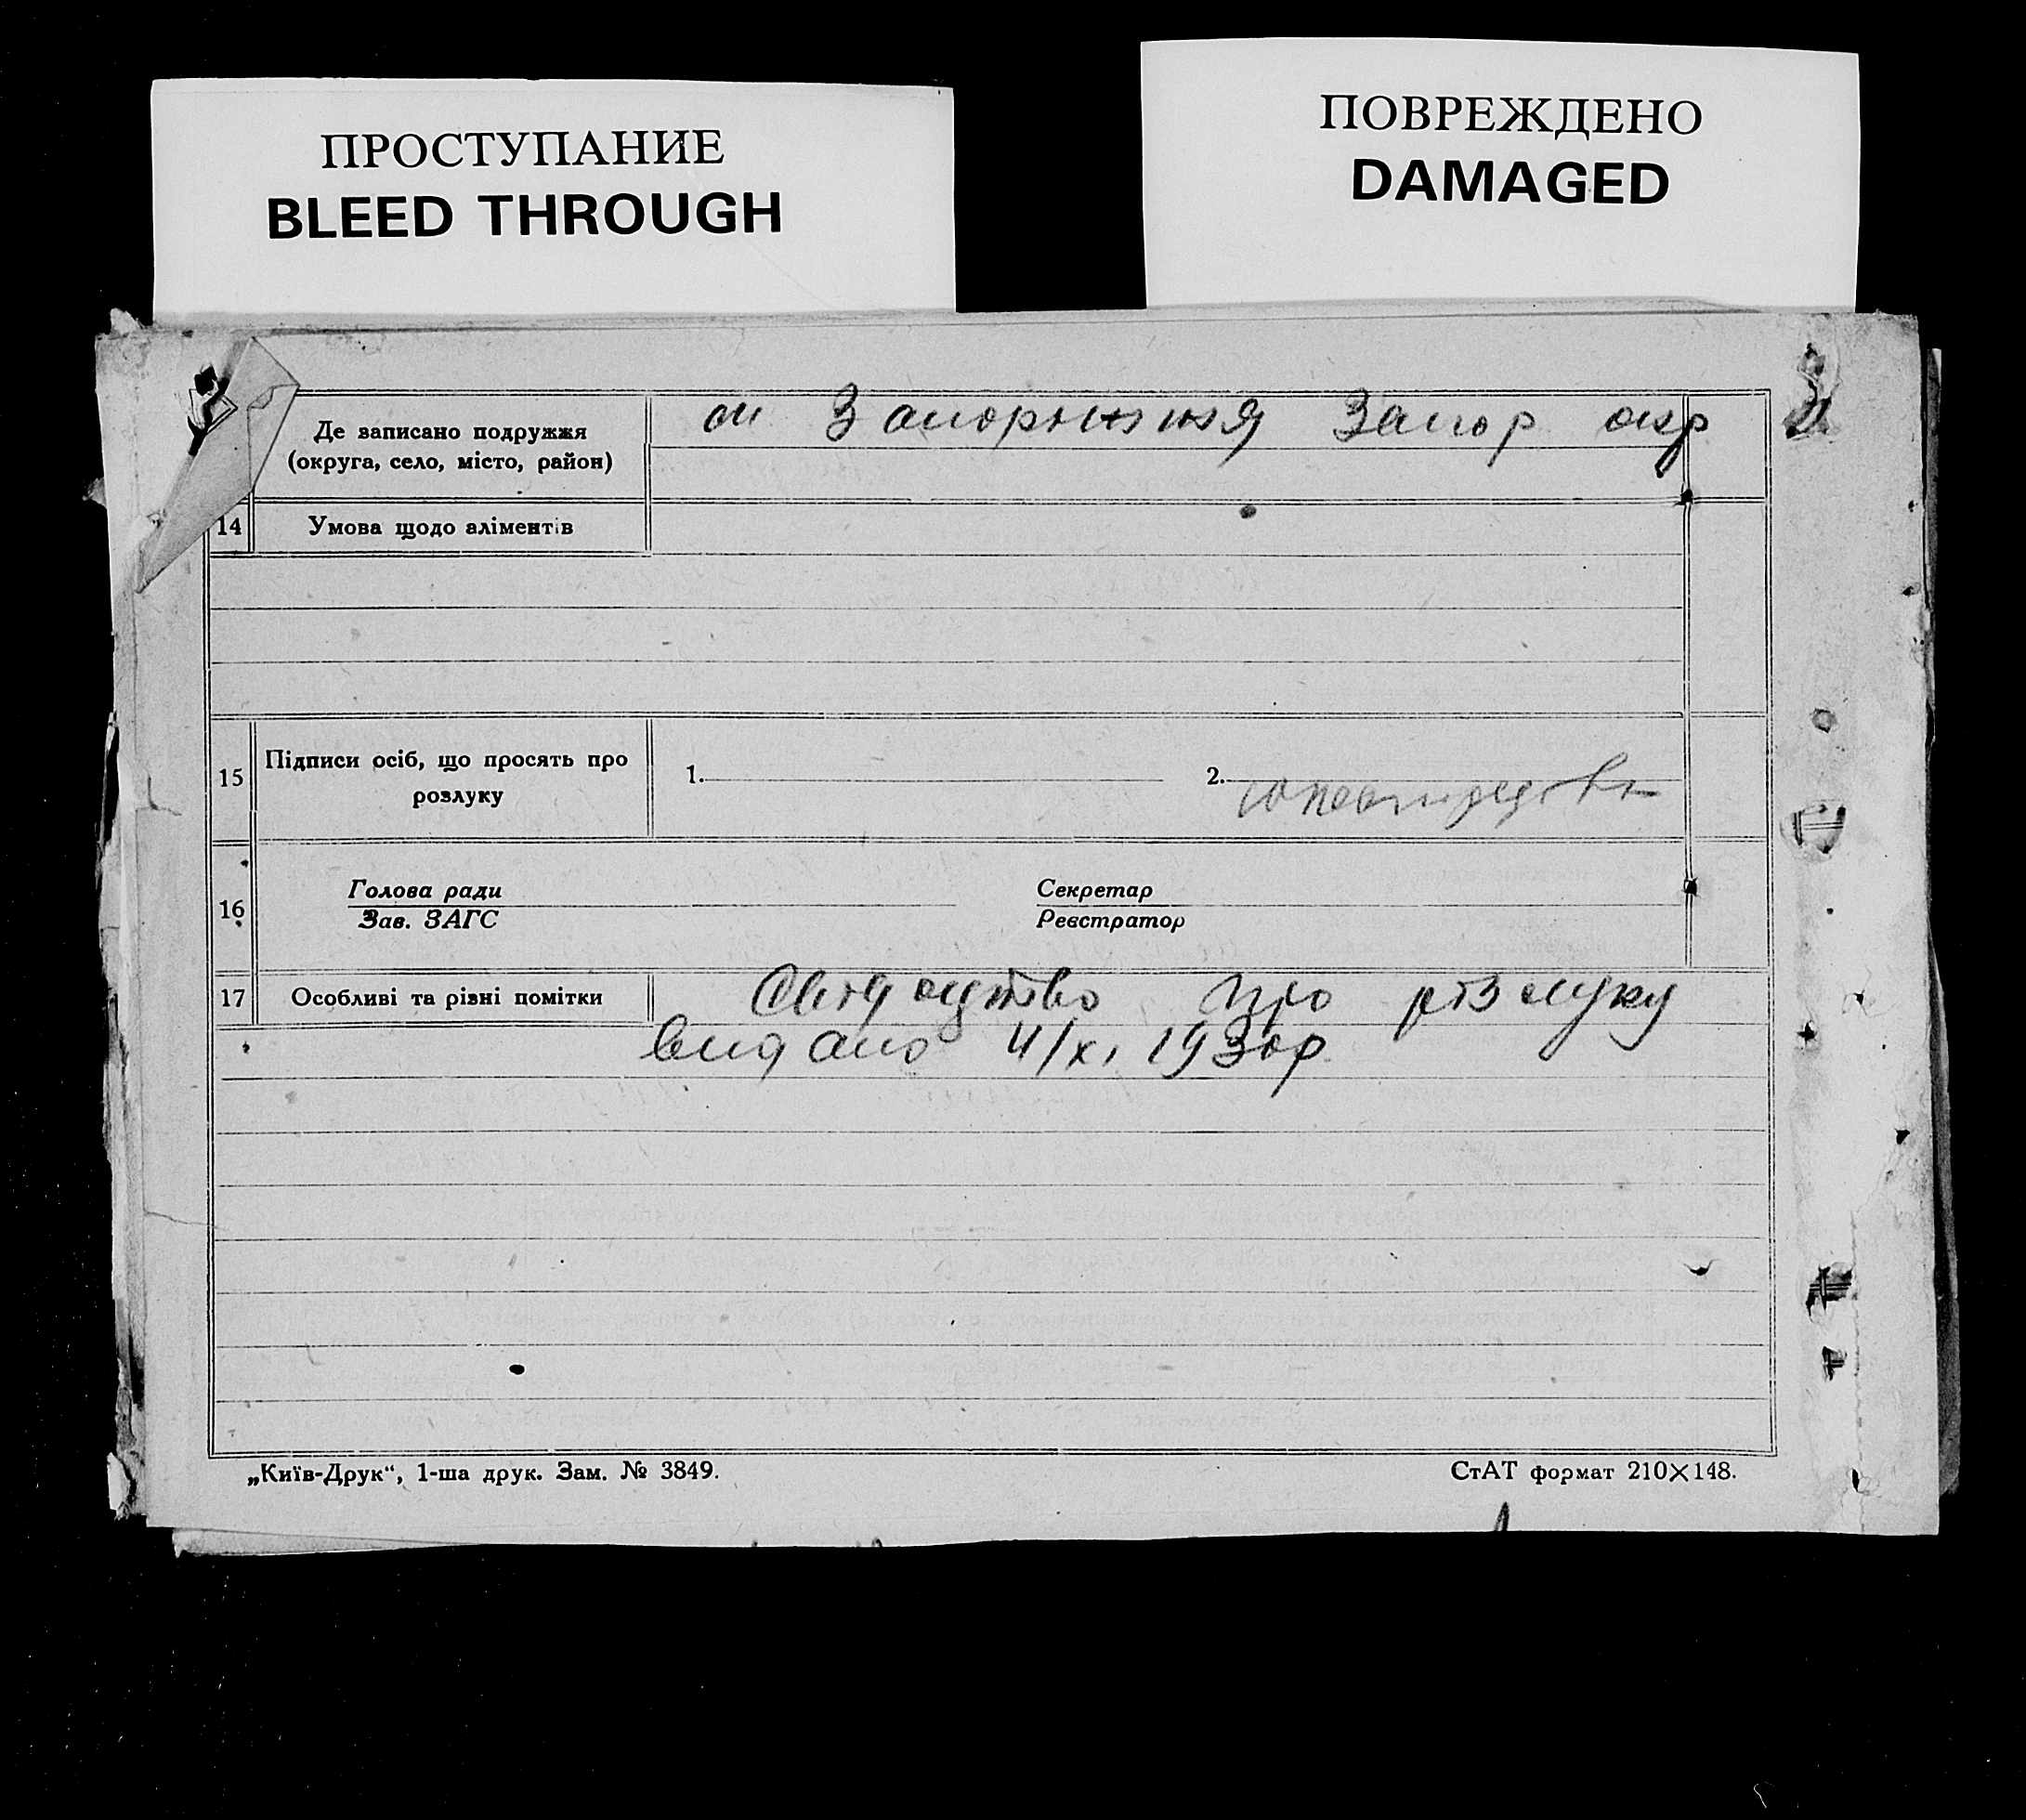 ПРОСТУПАНИЕ
BLEED THROUGH
ПОВРЕЖДЕНО
DAMAGED
Де записано подружжя
(округа, село, місто, район)
м Запоріжжя Запор окр
14 Умова щодо аліментів
15 Підписи осіб, що просять про
розлуку
1. 2.
16 Голова ради Секретар
Зав. ЗАГС Реєстратор
17 Особливі та різні помітки
Свідоцтво про розлуку
видано 4/XI 1930р
„Київ-Друк“, 1-ша друк. Зам. № 3849. СтАТ формат 210×148.